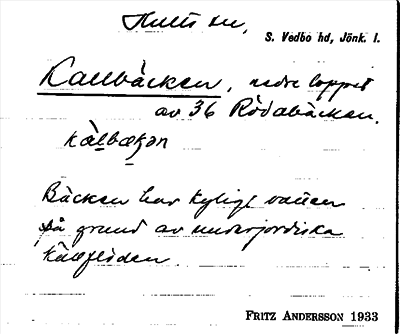 Hults sn,
S. Vedbo hd, Jönk. l.
Kallbäcken, nedre loppet
av 36 Rödabäcken.
kàlbækən
Bäcken har kyligt vatten
på grund av underjordiska
källflöden
FRITZ ANDERSSON 1933